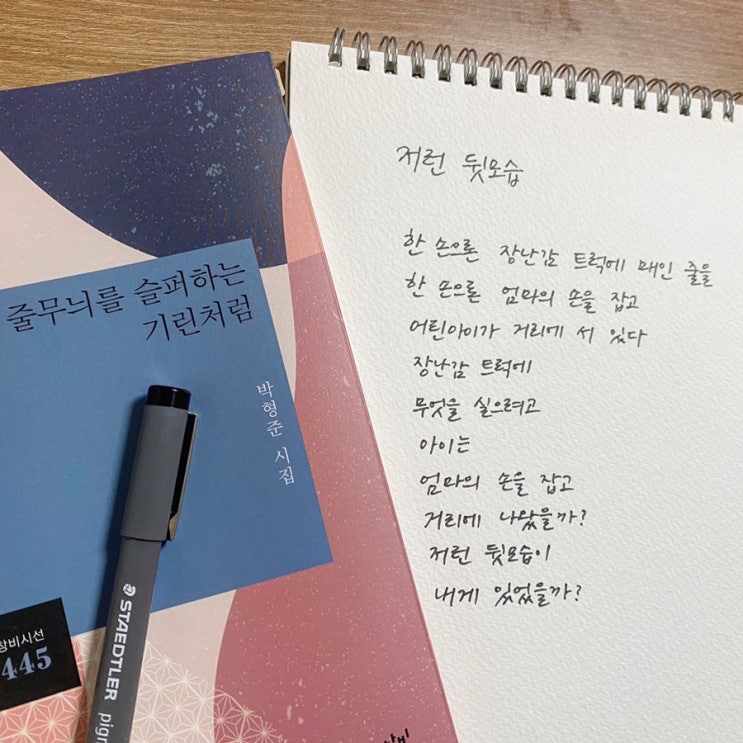 줄무늬를 슬퍼하는
기린처럼
박형준 시집
창비시선
445
STAEDTLER
pigm
저런 뒷모습
한 손으론 장난감 트럭에 매인 줄을
한 손으론 엄마의 손을 잡고
어린아이가 거리에 서 있다
장난감 트럭에
무엇을 실으려고
아이는
엄마의 손을 잡고
거리에 나왔을까?
저런 뒷모습이
내게 있었을까?